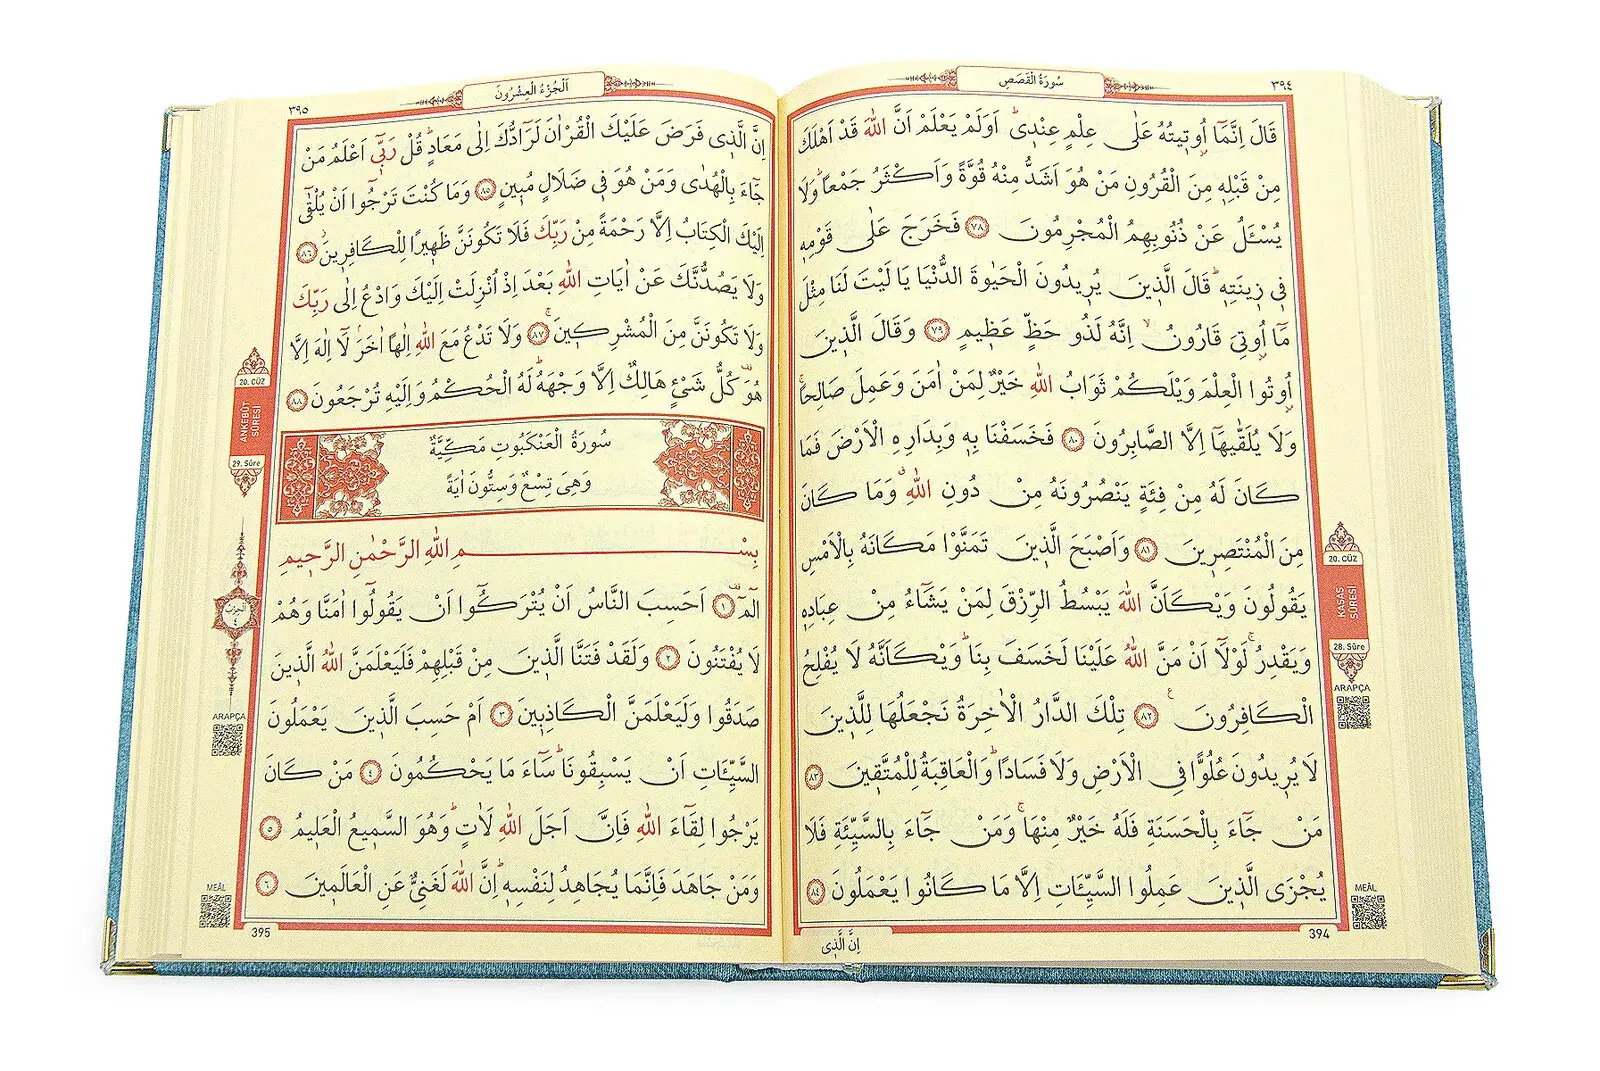 ٣٩٤
سُورَةُ الْقَصَصِ
قَالَ اِنَّمَٓا اُو۫ت۪يتُهُ عَلٰى عِلْمٍ عِنْد۪يۜ اَوَلَمْ يَعْلَمْ اَنَّ اللّٰهَ قَدْ اَهْلَكَ
مِنْ قَبْلِه۪ مِنَ الْقُرُونِ مَنْ هُوَ اَشَدُّ مِنْهُ قُوَّةً وَاَكْثَرُ جَمْعاًۜ وَلَا
يُسْـَٔلُ عَنْ ذُنُوبِهِمُ الْمُجْرِمُونَ ﴿٧٨﴾ فَخَرَجَ عَلٰى قَوْمِه۪
ف۪ي ز۪ينَتِه۪ۜ قَالَ الَّذ۪ينَ يُر۪يدُونَ الْحَيٰوةَ الدُّنْيَا يَا لَيْتَ لَنَا مِثْلَ
مَٓا اُو۫تِيَ قَارُونُۙ اِنَّهُ لَذُو حَظٍّ عَظ۪يمٍ ﴿٧٩﴾ وَقَالَ الَّذ۪ينَ
اُو۫تُوا الْعِلْمَ وَيْلَكُمْ ثَوَابُ اللّٰهِ خَيْرٌ لِمَنْ اٰمَنَ وَعَمِلَ صَالِحاًۚ
وَلَا يُلَقّٰيهَٓا اِلَّا الصَّابِرُونَ ﴿٨٠﴾ فَخَسَفْنَا بِه۪ وَبِدَارِهِ الْاَرْضَ فَمَا
كَانَ لَهُ مِنْ فِئَةٍ يَنْصُرُونَهُ مِنْ دُونِ اللّٰهِۗ وَمَا كَانَ
مِنَ الْمُنْتَصِر۪ينَ ﴿٨١﴾ وَاَصْبَحَ الَّذ۪ينَ تَمَنَّوْا مَكَانَهُ بِالْاَمْسِ
يَقُولُونَ وَيْكَاَنَّ اللّٰهَ يَبْسُطُ الرِّزْقَ لِمَنْ يَشَٓاءُ مِنْ عِبَادِه۪
وَيَقْدِرُۚ لَوْلَٓا اَنْ مَنَّ اللّٰهُ عَلَيْنَا لَخَسَفَ بِنَاۜ وَيْكَاَنَّهُ لَا يُفْلِحُ
الْكَافِرُونَ۟ ﴿٨٢﴾ تِلْكَ الدَّارُ الْاٰخِرَةُ نَجْعَلُهَا لِلَّذ۪ينَ
لَا يُر۪يدُونَ عُلُوًّا فِي الْاَرْضِ وَلَا فَسَاداًۜ وَالْعَاقِبَةُ لِلْمُتَّق۪ينَ ﴿٨٣﴾
مَنْ جَٓاءَ بِالْحَسَنَةِ فَلَهُ خَيْرٌ مِنْهَاۚ وَمَنْ جَٓاءَ بِالسَّيِّئَةِ فَلَا
يُجْزَى الَّذ۪ينَ عَمِلُوا السَّيِّـَٔاتِ اِلَّا مَا كَانُوا يَعْمَلُونَ ﴿٨٤﴾
394
اِنَّ الَّذ۪ي
20. CÜZ
KASAS
SÛRESİ
28. Sûre
ARAPÇA
MEÂL
اَلْجُزْءُ الْعِشْرُونَ
٣٩٥
اِنَّ الَّذ۪ي فَرَضَ عَلَيْكَ الْقُرْاٰنَ لَرَٓادُّكَ اِلٰى مَعَادٍۜ قُلْ رَبّ۪ٓي اَعْلَمُ مَنْ
جَٓاءَ بِالْهُدٰى وَمَنْ هُوَ ف۪ي ضَلَالٍ مُب۪ينٍ ﴿٨٥﴾ وَمَا كُنْتَ تَرْجُٓوا اَنْ يُلْقٰٓى
اِلَيْكَ الْكِتَابُ اِلَّا رَحْمَةً مِنْ رَبِّكَ فَلَا تَكُونَنَّ ظَه۪يراً لِلْكَافِر۪ينَۘ ﴿٨٦﴾
وَلَا يَصُدُّنَّكَ عَنْ اٰيَاتِ اللّٰهِ بَعْدَ اِذْ اُنْزِلَتْ اِلَيْكَ وَادْعُ اِلٰى رَبِّكَ
وَلَا تَكُونَنَّ مِنَ الْمُشْرِك۪ينَۚ ﴿٨٧﴾ وَلَا تَدْعُ مَعَ اللّٰهِ اِلٰهاً اٰخَرَۢ لَٓا اِلٰهَ اِلَّا
هُوَ۠ كُلُّ شَيْءٍ هَالِكٌ اِلَّا وَجْهَهُۜ لَهُ الْحُكْمُ وَاِلَيْهِ تُرْجَعُونَ ﴿٨٨﴾
سُورَةُ الْعَنْكَبُوتِ مَكِّيَّةٌ
وَهِيَ تِسْعٌ وَسِتُّونَ اٰيَةً
بِسْمِ اللّٰهِ الرَّحْمٰنِ الرَّح۪يمِ
الٓمٓ۠ ﴿١﴾ اَحَسِبَ النَّاسُ اَنْ يُتْرَكُٓوا اَنْ يَقُولُٓوا اٰمَنَّا وَهُمْ
لَا يُفْتَنُونَ ﴿٢﴾ وَلَقَدْ فَتَنَّا الَّذ۪ينَ مِنْ قَبْلِهِمْ فَلَيَعْلَمَنَّ اللّٰهُ الَّذ۪ينَ
صَدَقُوا وَلَيَعْلَمَنَّ الْكَاذِب۪ينَ ﴿٣﴾ اَمْ حَسِبَ الَّذ۪ينَ يَعْمَلُونَ
السَّيِّـَٔاتِ اَنْ يَسْبِقُونَاۜ سَٓاءَ مَا يَحْكُمُونَ ﴿٤﴾ مَنْ كَانَ
يَرْجُوا لِقَٓاءَ اللّٰهِ فَاِنَّ اَجَلَ اللّٰهِ لَاٰتٍۜ وَهُوَ السَّم۪يعُ الْعَل۪يمُ ﴿٥﴾
وَمَنْ جَاهَدَ فَاِنَّمَا يُجَاهِدُ لِنَفْسِه۪ۜ اِنَّ اللّٰهَ لَغَنِيٌّ عَنِ الْعَالَم۪ينَ ﴿٦﴾
395
20. CÜZ
ANKEBÛT
SÛRESİ
29. Sûre
الحزب
٤
ARAPÇA
MEÂL